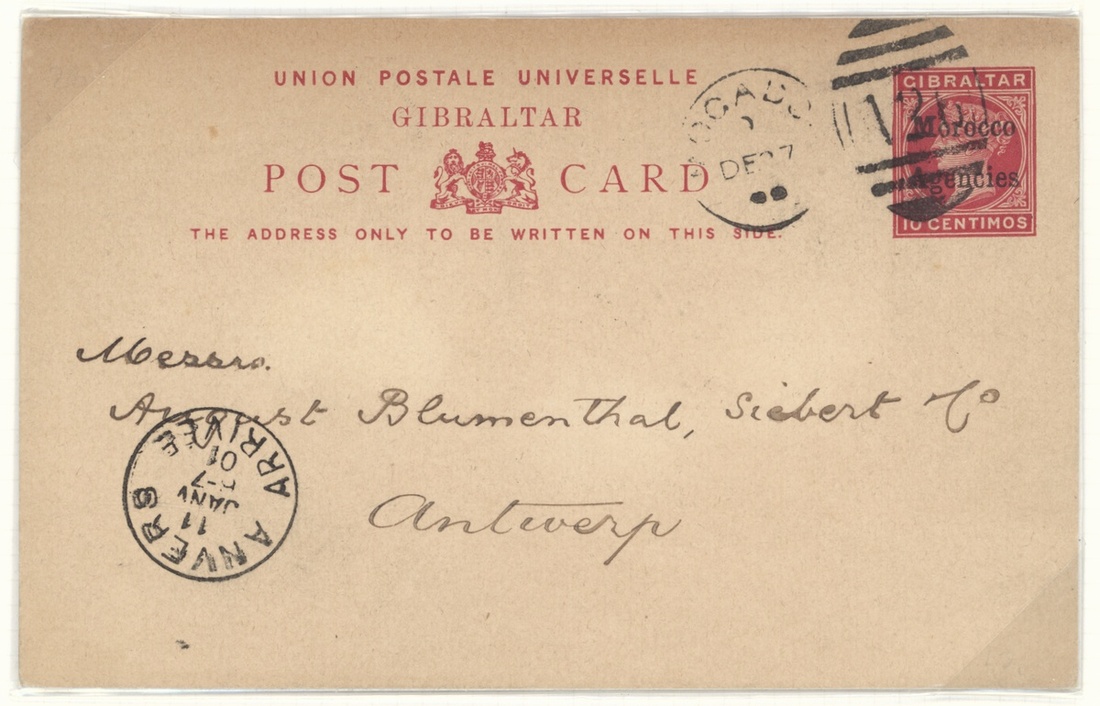 UNION POSTALE UNIVERSELLE
GIBRALTAR
POST CARD
THE ADDRESS ONLY TO BE WRITTEN ON THIS SIDE.
MOGADO
DE 27
GIBRALTAR
Morocco
Agencies
10 CENTIMOS
Messrs.
August Blumenthal, Siebert & Co
Antwerp
ANVERS
ARRIVEE
11
JANV
01